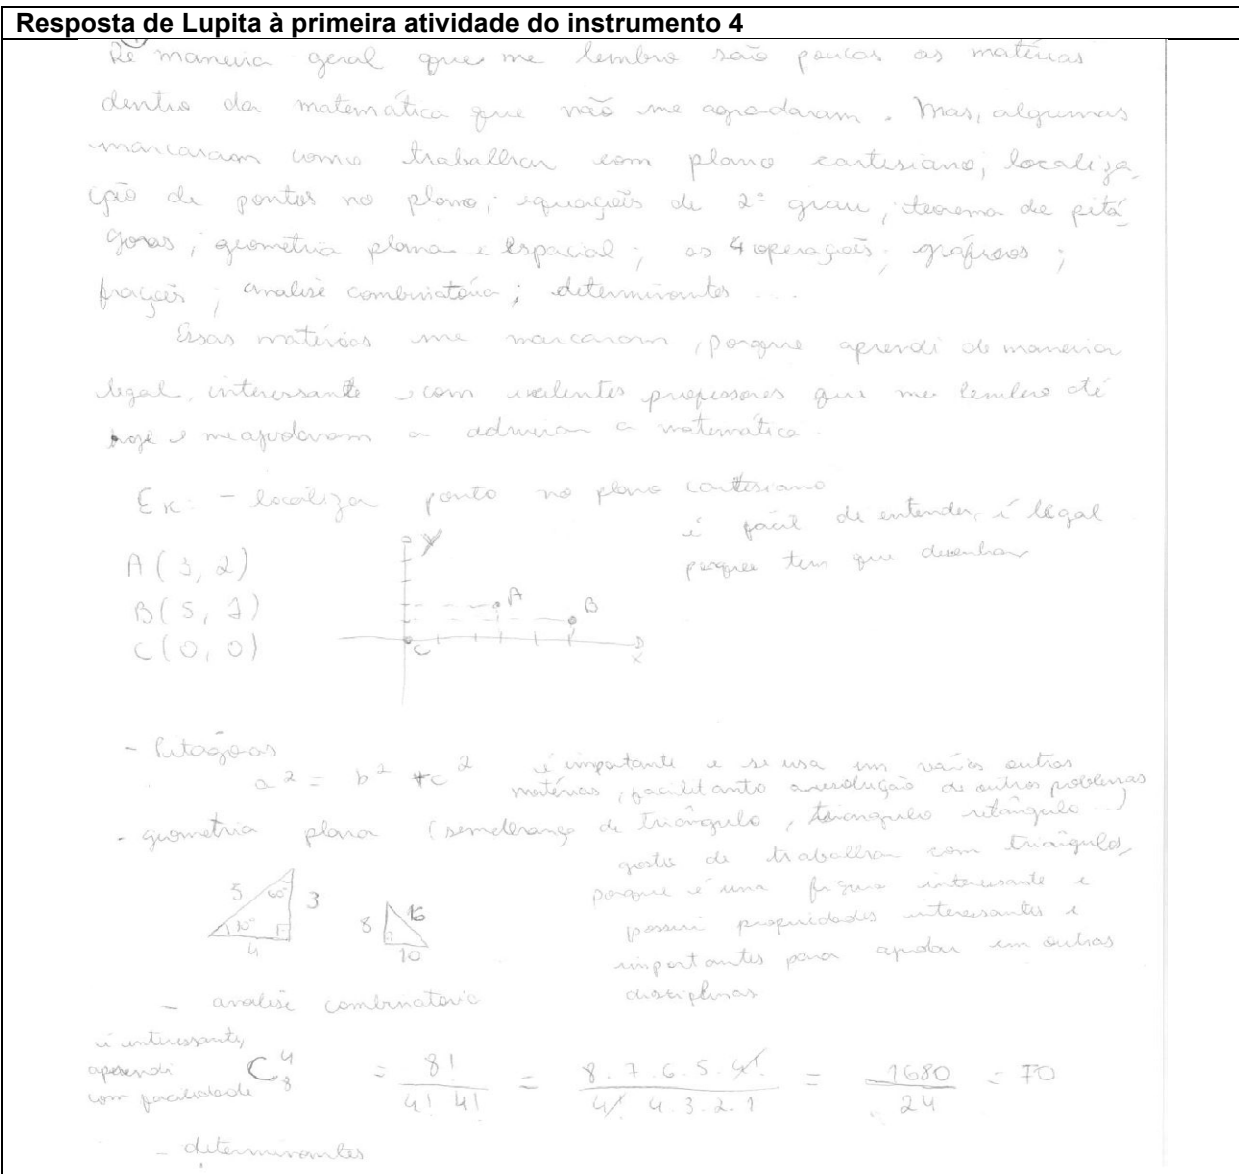 Resposta de Lupita à primeira atividade do instrumento 4
De maneira geral que me lembro são poucas as matérias
dentro da matemática que não me agradaram. Mas, algumas
marcaram como trabalhar com plano cartesiano; localiza
ção de pontos no plano; equações de 2º grau; teorema de pitá
goras; geometria plana e espacial; as 4 operações; gráficos;
frações; analise combinatória; determinantes ...
Essas matérias me marcaram, porque aprendi de maneira
legal, interessante e com excelentes professores que me lembro até
hoje e me ajudaram a admirar a matemática.
Ex: - localizar ponto no plano cartesiano
é fácil de entender, é legal
porque tem que desenhar
A (3, 2)
B (5, 1)
C (0, 0)
y
A
B
C
x
- Pitágoras
a² = b² + c²
é importante e se usa em varias outras
matérias, facilitanto a resolução de outros problemas
- geometria plana (semelhança de triângulo, triangulo retângulo ...)
gosto de trabalhar com triângulo,
porque é uma figura interessante e
possui propriedades interessantes e
importantes para ajudar em outras
disciplinas
5 60° 3
30°
4
8 16
10
- analise combinatória
é interessante,
aprendi
com facilidade
C₈⁴ = 8! / 4! 4! = 8.7.6.5.4! / 4! 4.3.2.1 = 1680 / 24 = 70
- determinantes